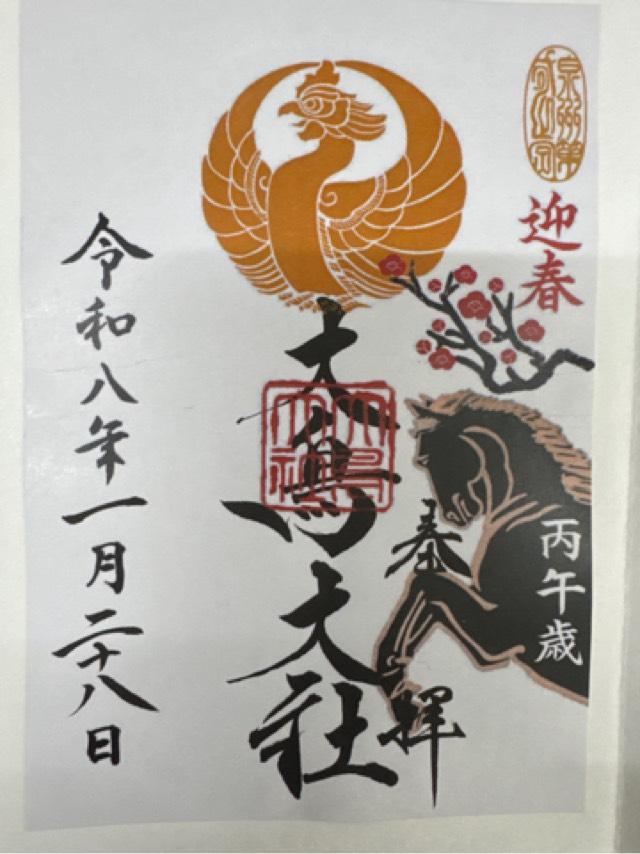 迎春
丙午歳
奉拝
大鳥大社
大鳥
大社
令和八年一月二十八日